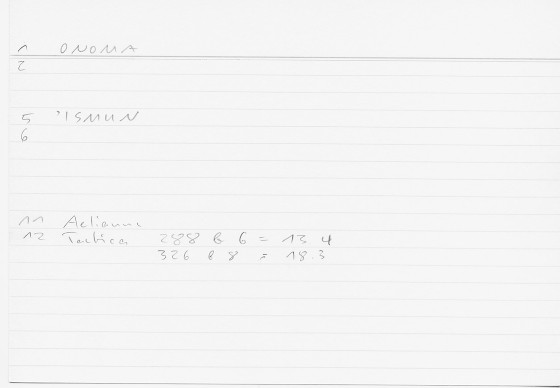 1 ONOMA
2
5 'ISMUN
6
11 Aelianus
12 Tactica 288 B 6 = 13 4
326 B 8 = 18.3